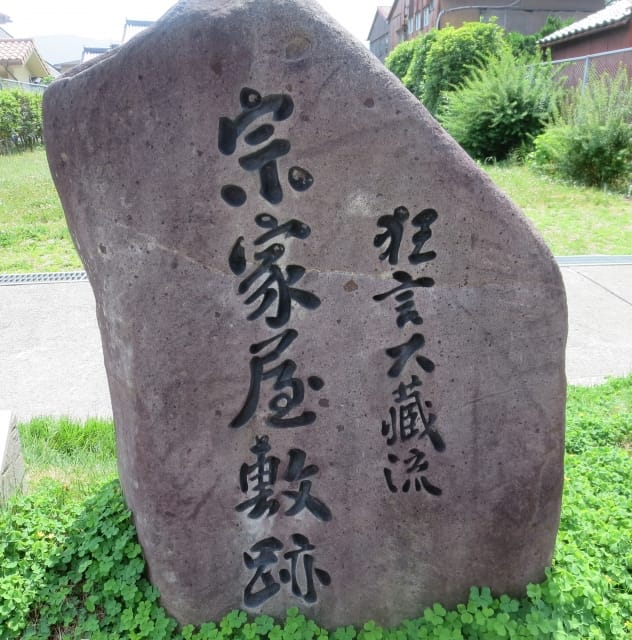 狂言大藏流
宗家屋敷跡